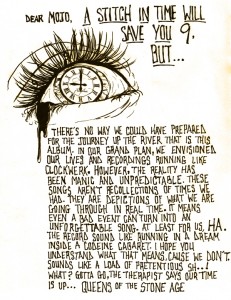 DEAR MOJO, A STITCH IN TIME WILL
SAVE YOU 9.
BUT...
THERE'S NO WAY WE COULD HAVE PREPARED
FOR THE JOURNEY UP THE RIVER THAT IS THIS
ALBUM. IN OUR GRAND PLAN, WE ENVISIONED
OUR LIVES AND RECORDINGS RUNNING LIKE
CLOCKWERK. HOWEVER, THE REALITY HAS
BEEN MANIC AND UNPREDICTABLE. THESE
SONGS AREN'T RECOLLECTIONS OF TIMES WE
HAD. THEY ARE DEPICTIONS OF WHAT WE ARE
GOING THROUGH IN REAL TIME. IT MEANS
EVEN A BAD EVENT CAN TURN INTO AN
UNFORGETTABLE SONG. AT LEAST FOR US. HA.
THE RECORD SOUND LIKE RUNNING IN A DREAM
INSIDE A CODEINE CABARET. I HOPE YOU
UNDERSTAND WHAT THAT MEANS, CAUSE WE DON'T.
SOUNDS LIKE A LOAD OF PRETENTIOUS SH..!
WHAT? GOTTA GO, THE THERAPIST SAYS OUR TIME
IS UP... QUEENS OF THE STONE AGE